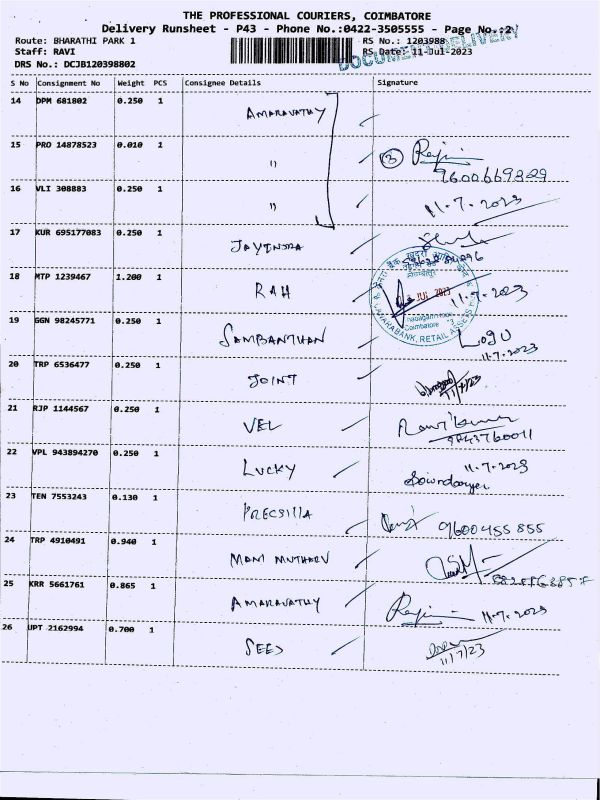 THE PROFESSIONAL COURIERS, COIMBATORE
Delivery Runsheet - P43 - Phone No.:0422-3505555 - Page No.:2
DOCUMENT DELIVERY
Route: BHARATHI PARK 1 RS No.: 1203988
Staff: RAVI RS Date: 11-Jul-2023
DRS No.: DCJB120398802
S No Consignment No Weight PCS Consignee Details Signature
14 DPM 681802 0.250 1 AMARAVATHY
15 PRO 14878523 0.010 1 " 3
9600669829
16 VLI 308883 0.250 1 " 11-7-2023
17 KUR 695177083 0.250 1 JAYINDRA
18 MTP 1239467 1.200 1 RAH 11-7-2023
JUL 2023
Coimbatore
CANARA BANK, RETAIL ASSETS
19 GGN 98245771 0.250 1 SAMBANTHAN Logu
11-7-2023
20 TRP 6536477 0.250 1 JOINT
11/7/23
21 RJP 1144567 0.250 1 VEL Ravi kumar
9843760011
22 VPL 943894270 0.250 1 LUCKY 11-7-2023
23 TEN 7553243 0.130 1 PRECSILLA 9600455855
24 TRP 4910491 0.940 1 MANI MUTHARU
25 KRR 5661761 0.865 1 AMARAVATHY 11-7-2023
26 UPT 2162994 0.700 1 SEES
11/7/23